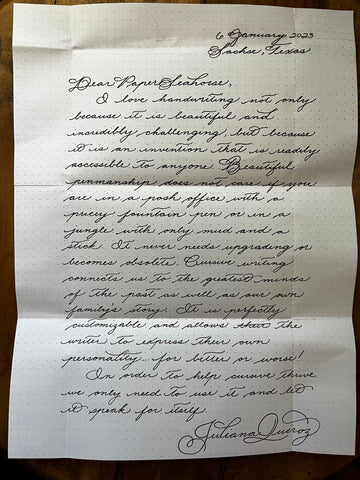 6 January 2023
Sachse, Texas
Dear PaperSeahorse,
I love handwriting not only
because it is beautiful and
incredibly challenging, but because
it is an invention that is readily
accessible to anyone. Beautiful
penmanship does not care if you
are in a posh office with a
pricey fountain pen or in a
jungle with only mud and a
stick. It never needs upgrading or
becomes obsolete. Cursive writing
connects us to the greatest minds
of the past as well as our own
family's story. It is perfectly
customizable and allows the
writer to express their own
personality... for better or worse!
In order to help cursive thrive
we only need to use it and let
it speak for itself.
Juliana Quiroz